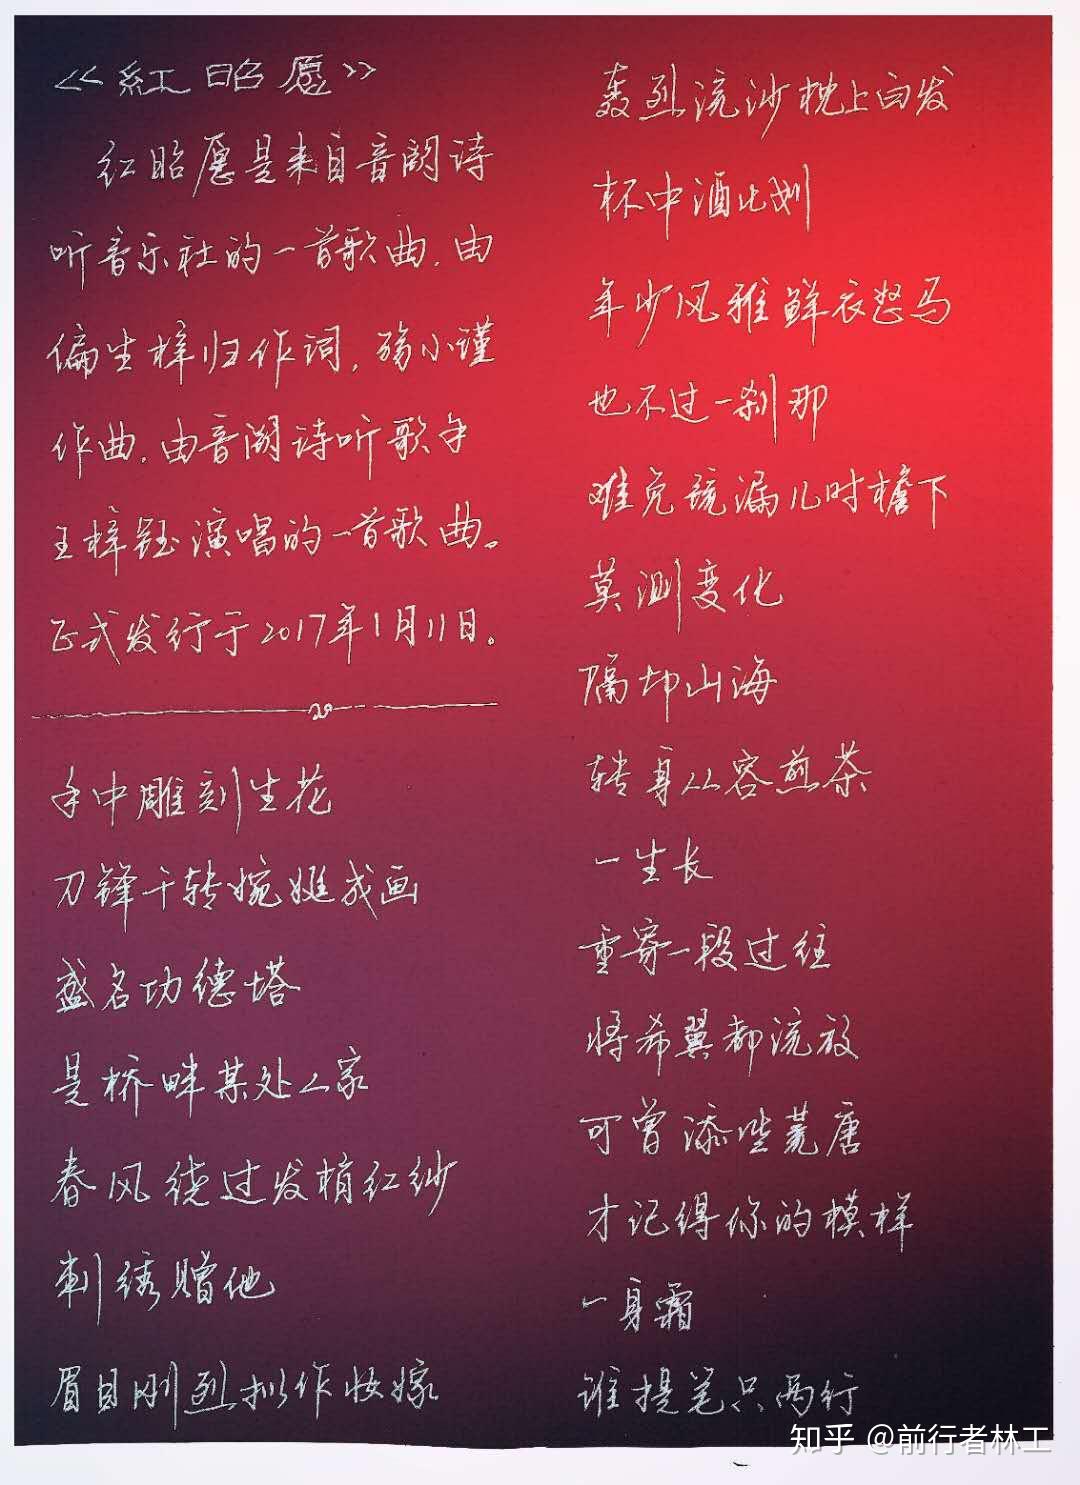 《紅昭愿》
红昭愿是来自音阙诗
听音乐社的一首歌曲.由
偏生梓归作词,殇小谨
作曲.由音阙诗听歌手
王梓钰演唱的一首歌曲。
正式发行于2017年1月11日。
手中雕刻生花
刀锋千转婉娫成画
盛名功德塔
是桥畔某处人家
春风绕过发梢红纱
刺绣赠他
眉目刚烈拟作妆嫁
轰烈流沙枕上白发
杯中酒比划
年少风雅鲜衣怒马
也不过一刹那
难免疏漏儿时檐下
莫测变化
隔却山海
转身从容煎茶
一生长
重寄一段过往
将希翼都流放
可曾添些荒唐
才记得你的模样
一身霜
谁提笔只两行
知乎 @前行者林工